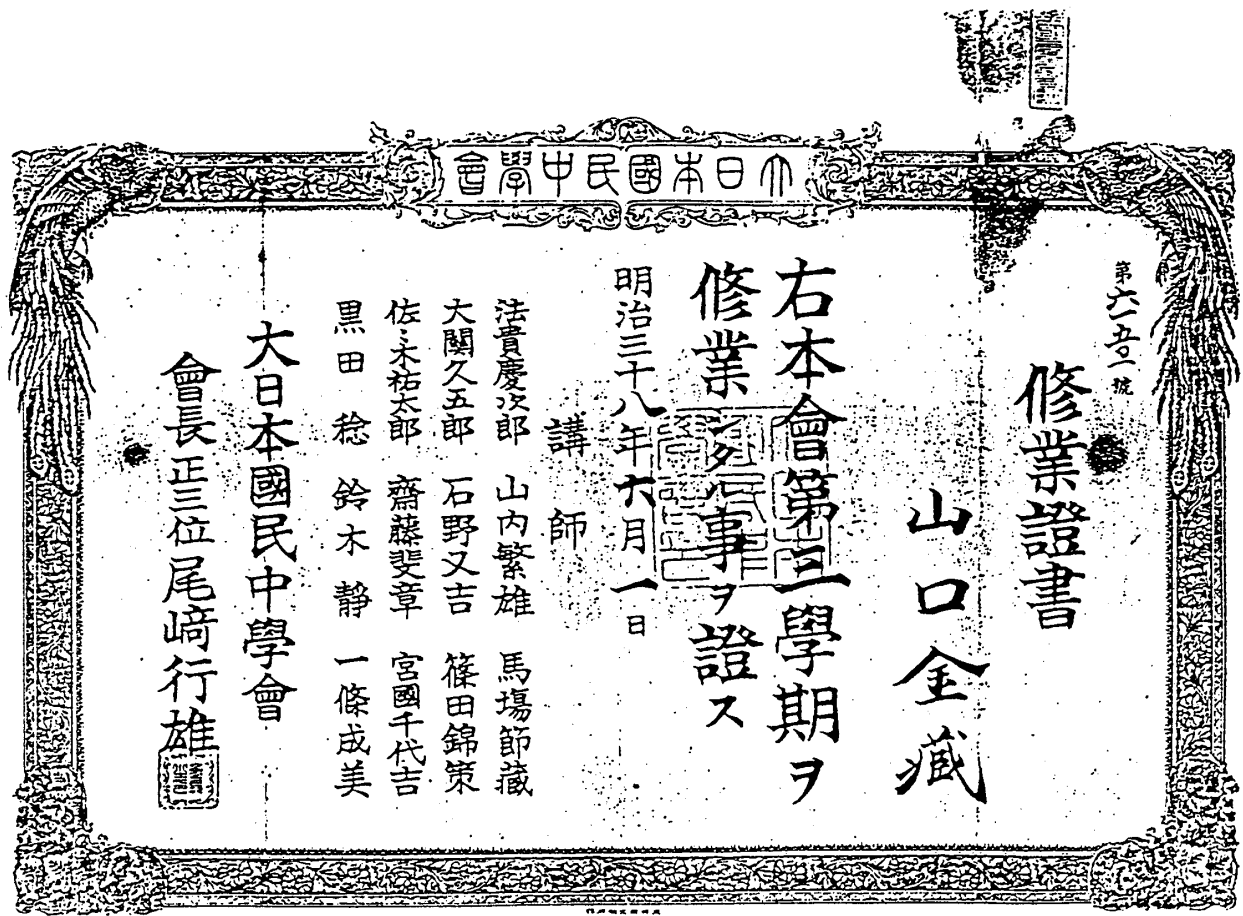 大日本國民中學會
第六一五一號
修業證書
山口金藏
右本會第三學期ヲ
修業シタル事ヲ證ス
明治三十八年六月一日
講師
法貴慶次郎 山内繁雄 馬場節藏
大關久五郎 石野又吉 篠田錦策
佐々木祐太郎 齋藤斐章 宮國千代吉
黒田稔 鈴木静 一條成美
大日本國民中學會
會長正三位尾﨑行雄